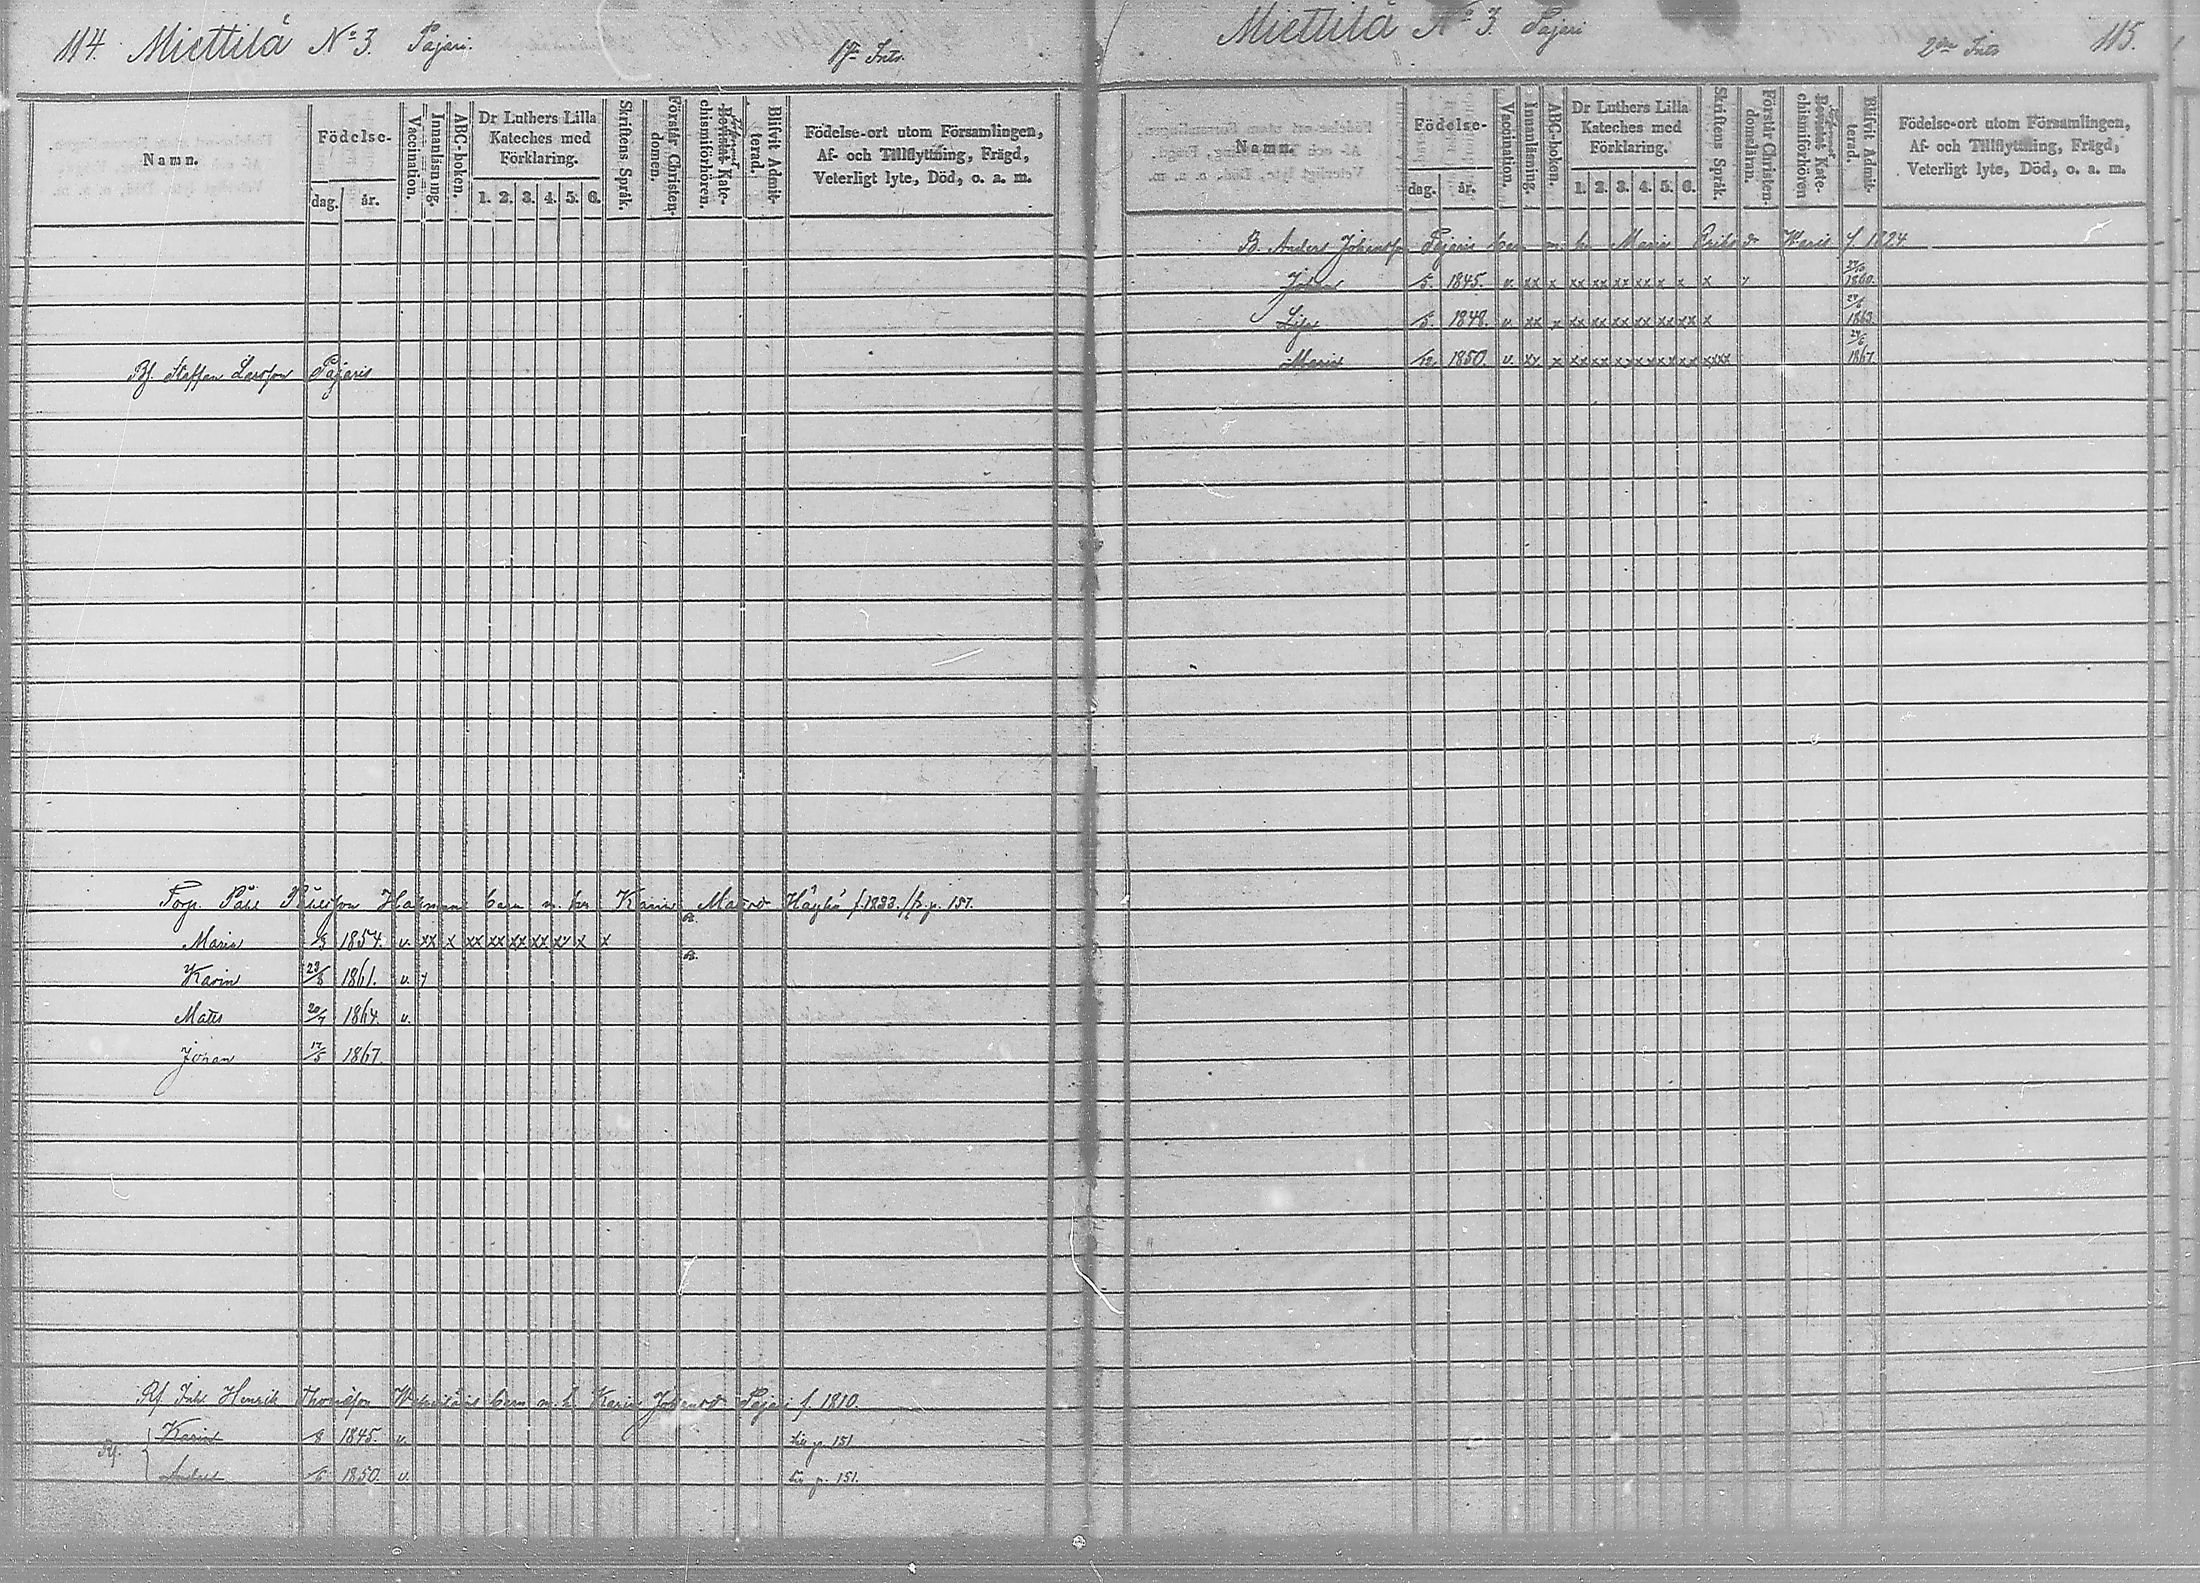 114. Miettilä No 3. Pajari. 1sta Intr.
Namn.
Födelse-
dag. år.
Vaccination.
Innanläsning.
ABC-boken.
Dr Luthers Lilla Kateches med Förklaring.
1. 2. 3. 4. 5. 6.
Skriftens Språk.
Förstår Christendomen.
Kate-chismiförhören.
Blifvit Admit-terad.
Födelse-ort utom Församlingen,
Af- och Tillflyttning, Frägd,
Veterligt lyte, Död, o. a. m.
Bf. Staffan Larsson Pajaris
Torp. Påhl Hakmans barn m. h. Karin Matsd Häyhä f. 1833. p. 157.
Maria /3 1854. v. xx x xx xx xx xx xx x x
Karin 23/8 1861. v. y
Matts 20/7 1864. v.
Johan 17/5 1867.
Rf. Inh. Henrik Thomasson barn m. h. Karin Johansd Pajari f. 1810.
Rf. Karin /8 1845. v. till p. 151
Anders /6 1850. v. till p. 151.
Miettilä No 3. Pajari 2dra Intr. 115.
Namn.
Födelse-
dag. år.
Vaccination.
Innanläsning.
ABC-boken.
Dr Luthers Lilla Kateches med Förklaring.
1. 2. 3. 4. 5. 6.
Skriftens Språk.
Förstår Christen-domsläran.
Kate-chismiförhören
Blifvit Admit-terad.
Födelse-ort utom Församlingen,
Af- och Tillflyttning, Frägd,
Veterligt lyte, Död, o. a. m.
B. Anders Johansson Pajaris barn m. h. Maria Eriksdr f. 1824
Johan /5. 1845. v. xx x xx xx xx xx x x x y 1860.
Lisa /5. 1848. v. xx x xx xx xx xx xx xx x 1863
Maria /12 1850. v. xx. x xx xx xx xx xx xxxx 24/6 1867.